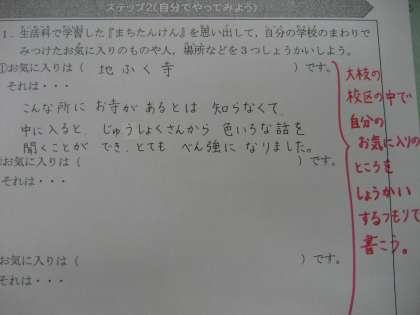 ステップ2(自分でやってみよう)
1．生活科で学習した『まちたんけん』を思い出して，自分の学校のまわりで
みつけたお気に入りのものや人，場所などを3つしょうかいしよう。
①お気に入りは（ 地ふく寺 ）です。
それは・・・
こんな所にお寺があるとは知らなくて、
中に入ると、じゅうしょくさんから色いろな話を
聞くことができ、とてもべん強になりました。
お気に入りは（ ）です。
それは・・・
お気に入りは（ ）です。
それは・・・
大枝の
校区の中で
自分の
お気に入りの
ところを
しょうかい
するつもりで
書こう。